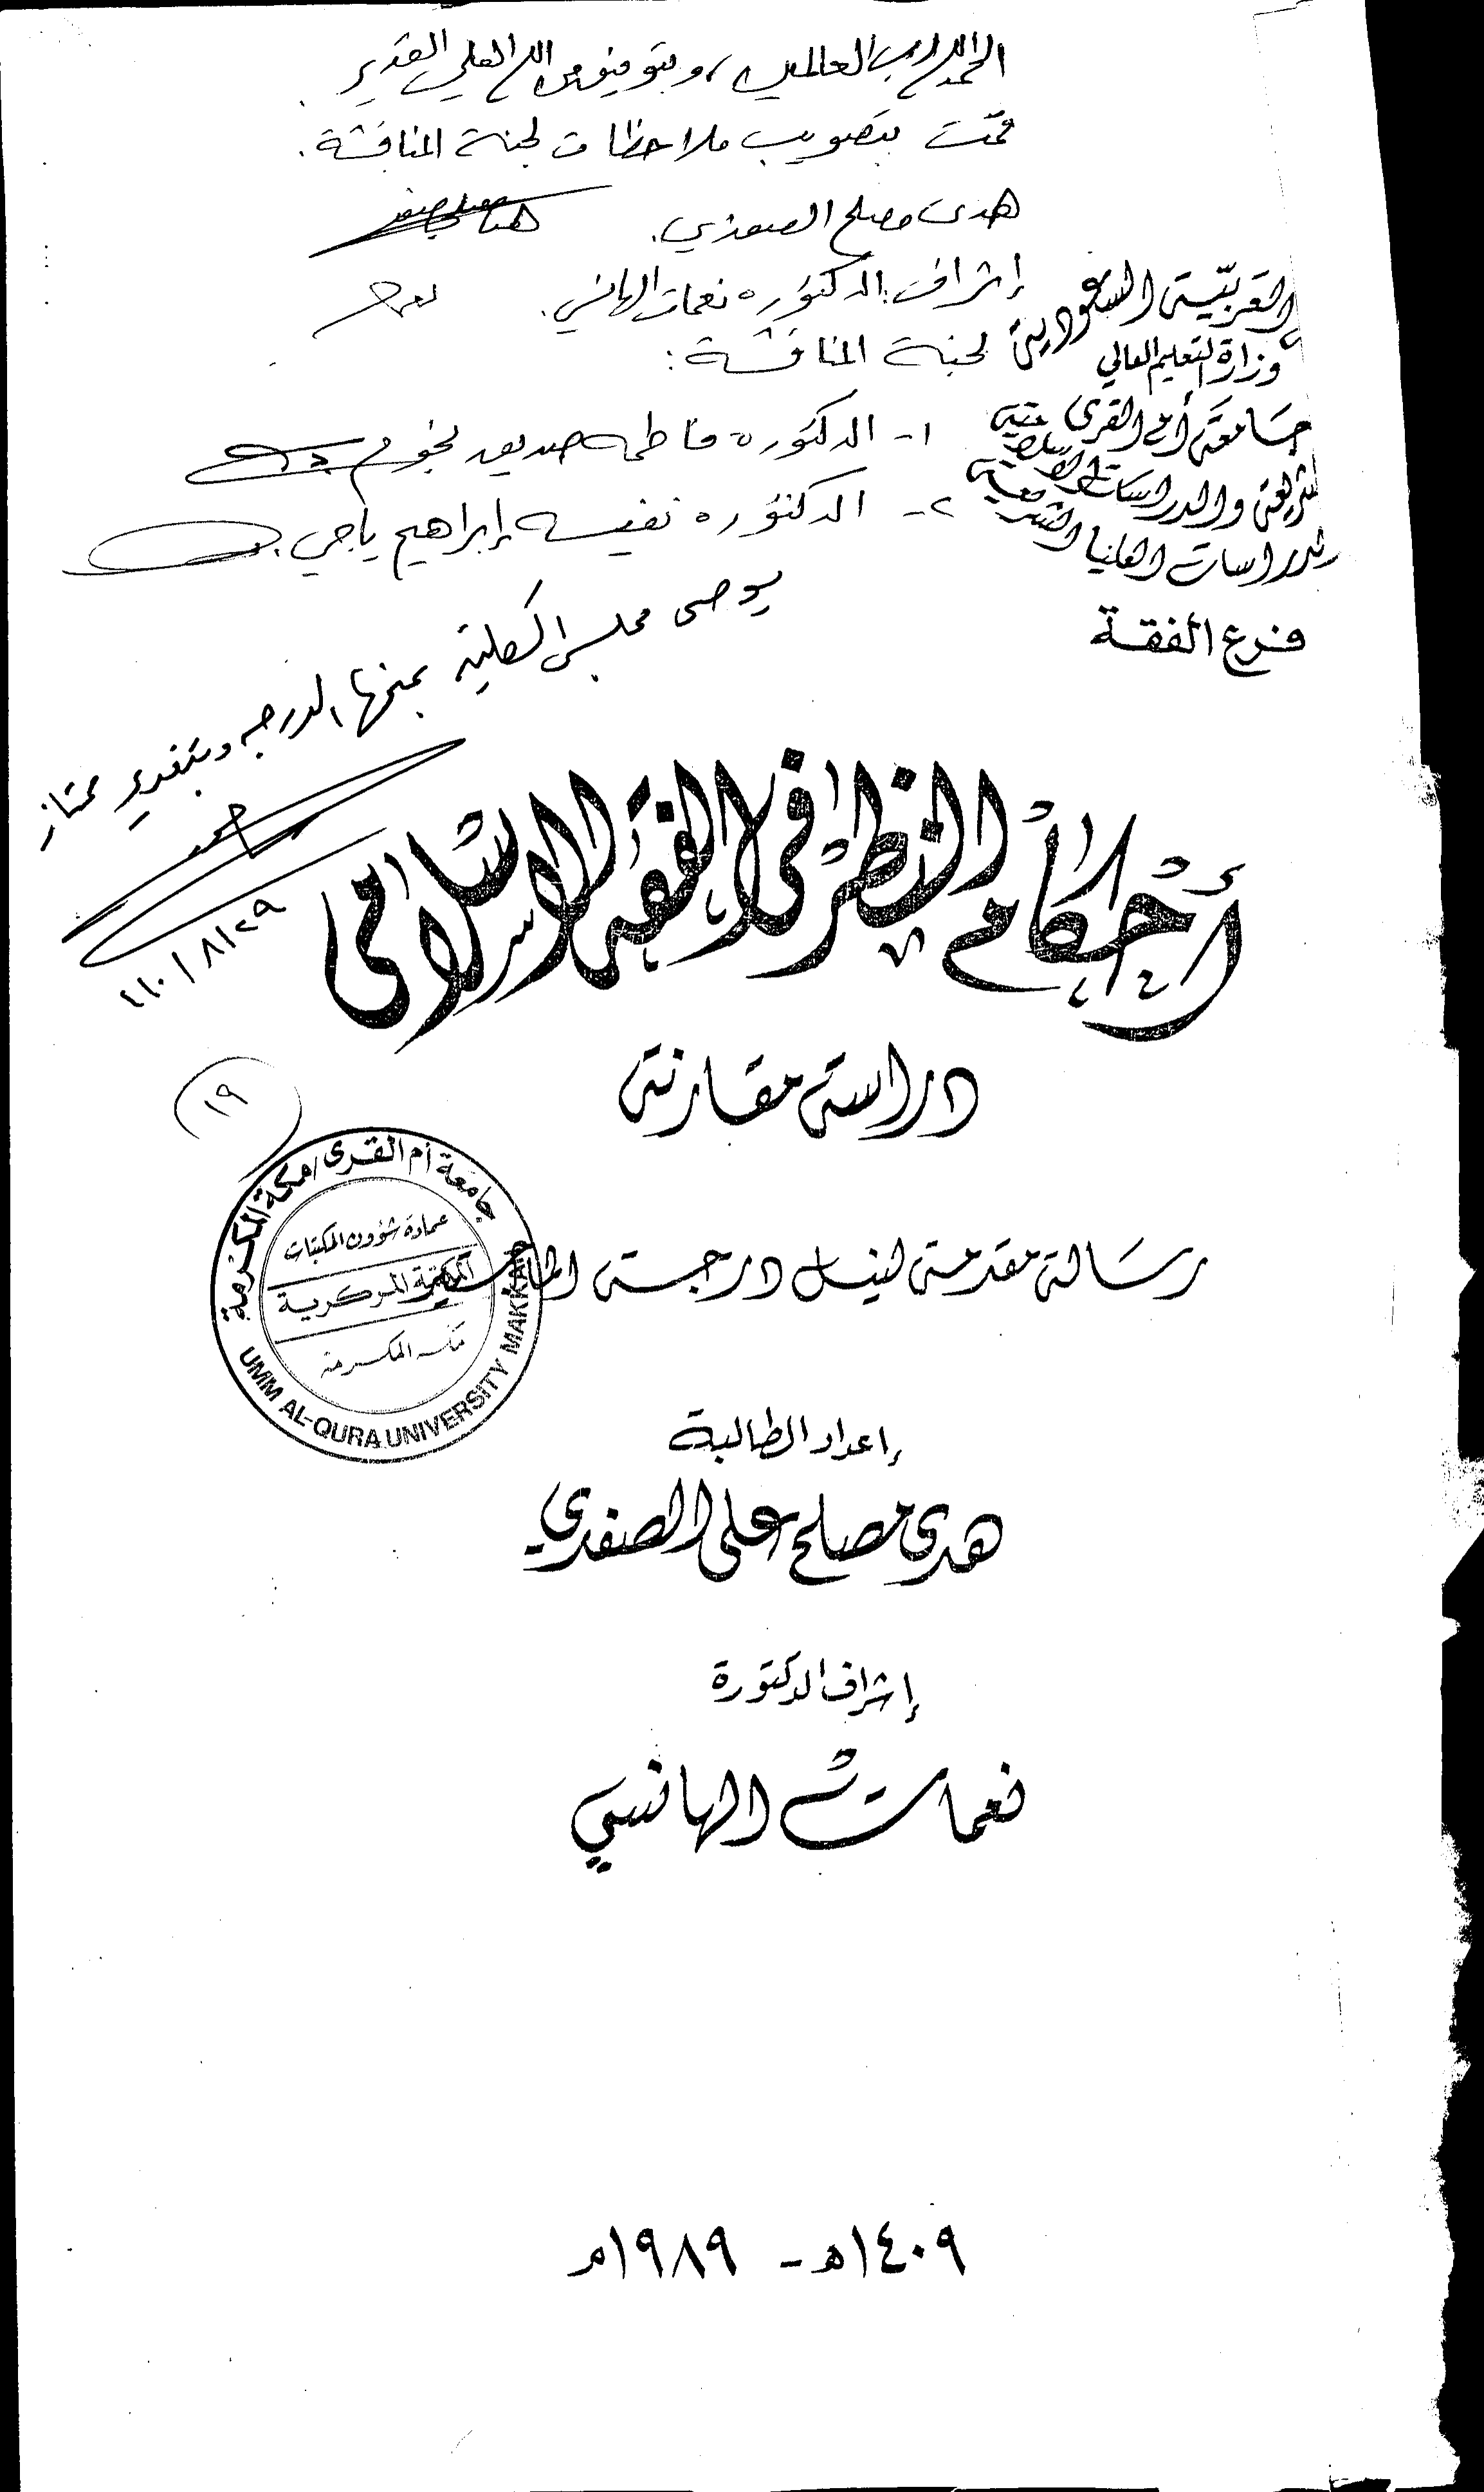 الحمد لله رب العالمين، وبتوفيق من الله العلي القدير
قمت بتصويب ملاحظات لجنة المناقشة.
هدى مصلح الصفدي.
إشراف الدكتوره نعمات الهانسي.
لجنة المناقشة:
١- الدكتوره فاطمه صديق نجوم
٢- الدكتوره نفيسه إبراهيم ياجي.
يوصى مجلس الكلية بمنحها الدرجه وبتقدير ممتاز
العربية السعودية
وزارة التعليم العالي
جامعة أم القرى
الشريعة والدراسات الإسلامية
الدراسات العليا الشرعية
فرع الفقة
أحكام النظر في الفقه الإسلامي
دراسة مقارنة
١٩
جامعة أم القرى / مكة المكرمة
عمادة شؤون المكتبات
المكتبة المركزية
مكة المكرمة
UMM AL-QURA UNIVERSITY MAKKAH
رسالة مقدمة لنيل درجة الماجستير
إعداد الطالبة
هدى مصلح على الصفدي
إشراف الدكتورة
نعمات الهانسي
١٤٠٩هـ - ١٩٨٩م